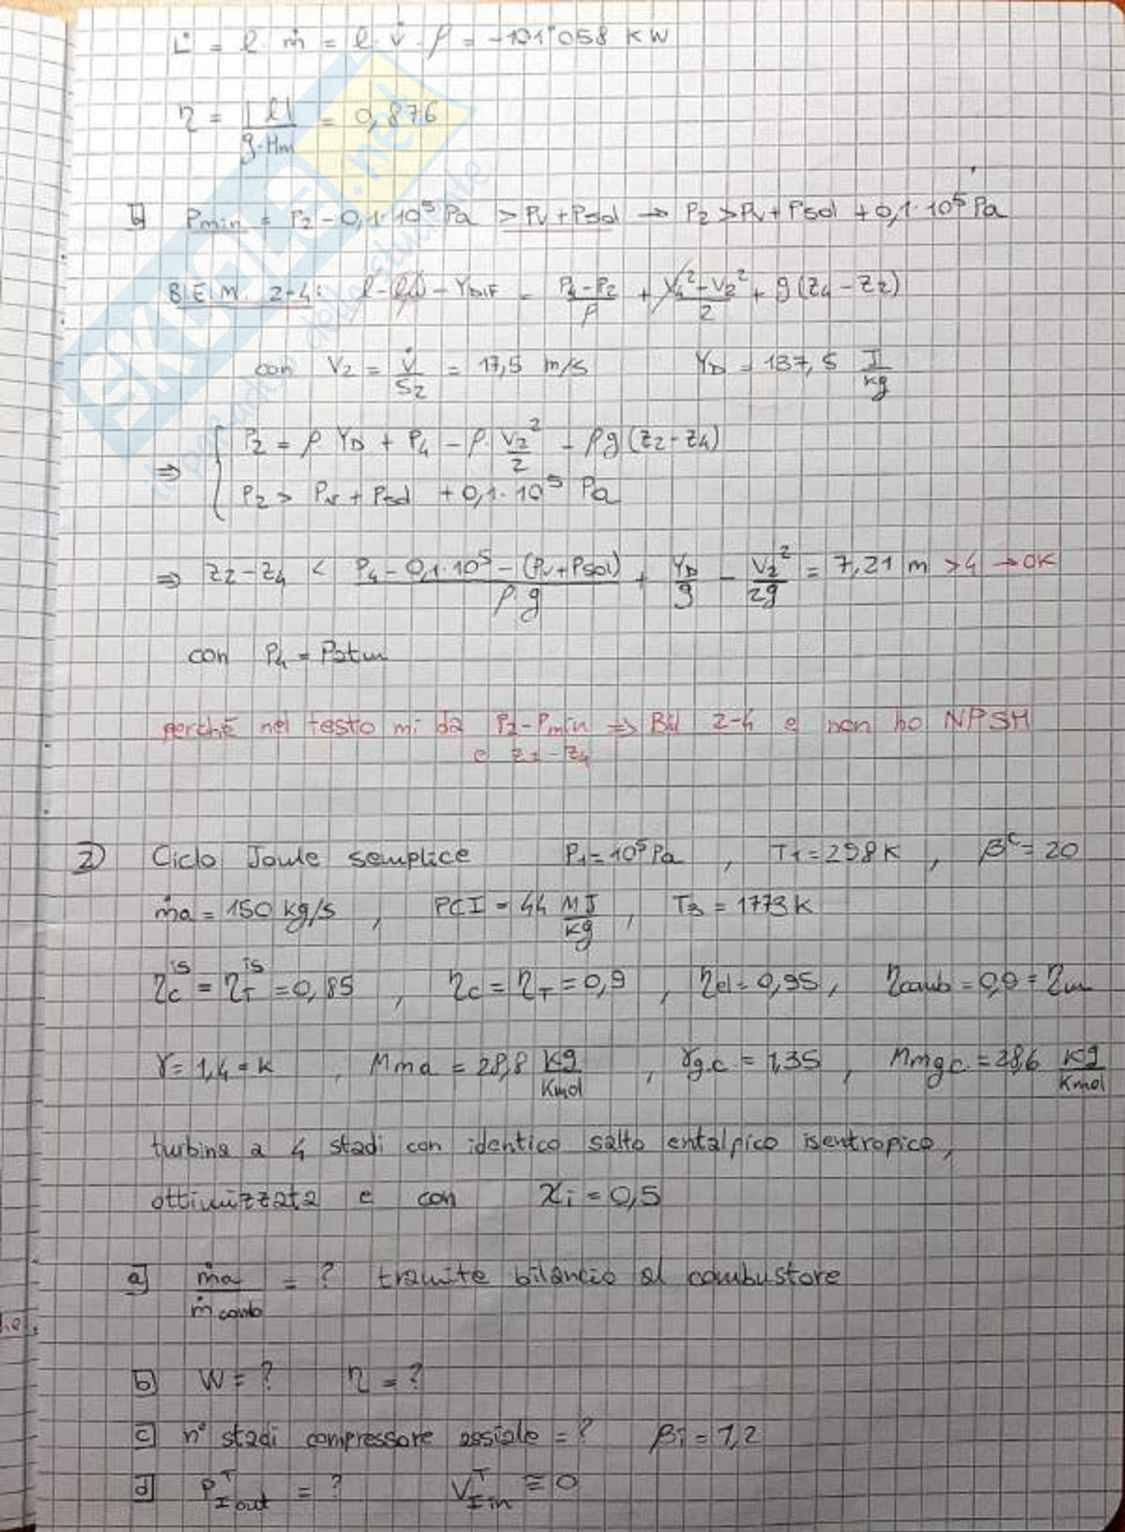 L̇ = l · ṁ = l · V̇ · ρ = -101'058 KW
η = |l| / g·Hm = 0,876
b) Pmin = P2 - 0,1·10⁵ Pa > Pv + Psol → P2 > Pv + Psol + 0,1·10⁵ Pa
B.E.M. 2-4: - YDIF = P4-P2 / ρ + V4² - V2² / 2 + g(Z4 - Z2)
con V2 = V̇ / S2 = 17,5 m/s YD = 137,5 J/kg
⇒ { P2 = ρ YD + P4 - ρ V2²/2 - ρg(Z2-Z4)
P2 > Pv + Psol + 0,1·10⁵ Pa
⇒ Z2-Z4 < P4 - 0,1·10⁵ - (Pv+Psol) / ρ·g + YD/g - V2²/2g = 7,21 m > 4 → OK
con P4 = Patm
perché nel testo mi dà P2-Pmin ⇒ 2-4 e non ho NPSH
2) Ciclo Joule semplice P1=10⁵Pa , T1=298K , βc=20
ṁa = 150 kg/s , PCI = 44 MJ/kg , T3 = 1773K
ηc is = ηT is = 0,85 , ηc = ηT = 0,9 , ηel = 0,95 , ηcomb = 0,9 = ηm
γ = 1,4 = k , Mma = 28,8 kg/Kmol , γg.c. = 1,35 , Mmgc = 28,6 kg/Kmol
turbina a 4 stadi con identico salto entalpico isentropico,
ottimizzata e con χi = 0,5
a) ṁa / ṁcomb = ? tramite bilancio al combustore
b) W = ? η = ?
c) n° stadi compressore assiale = ? βi = 1,2
d) P T I out = ? V T I in ≅ 0
EKUOLA.net